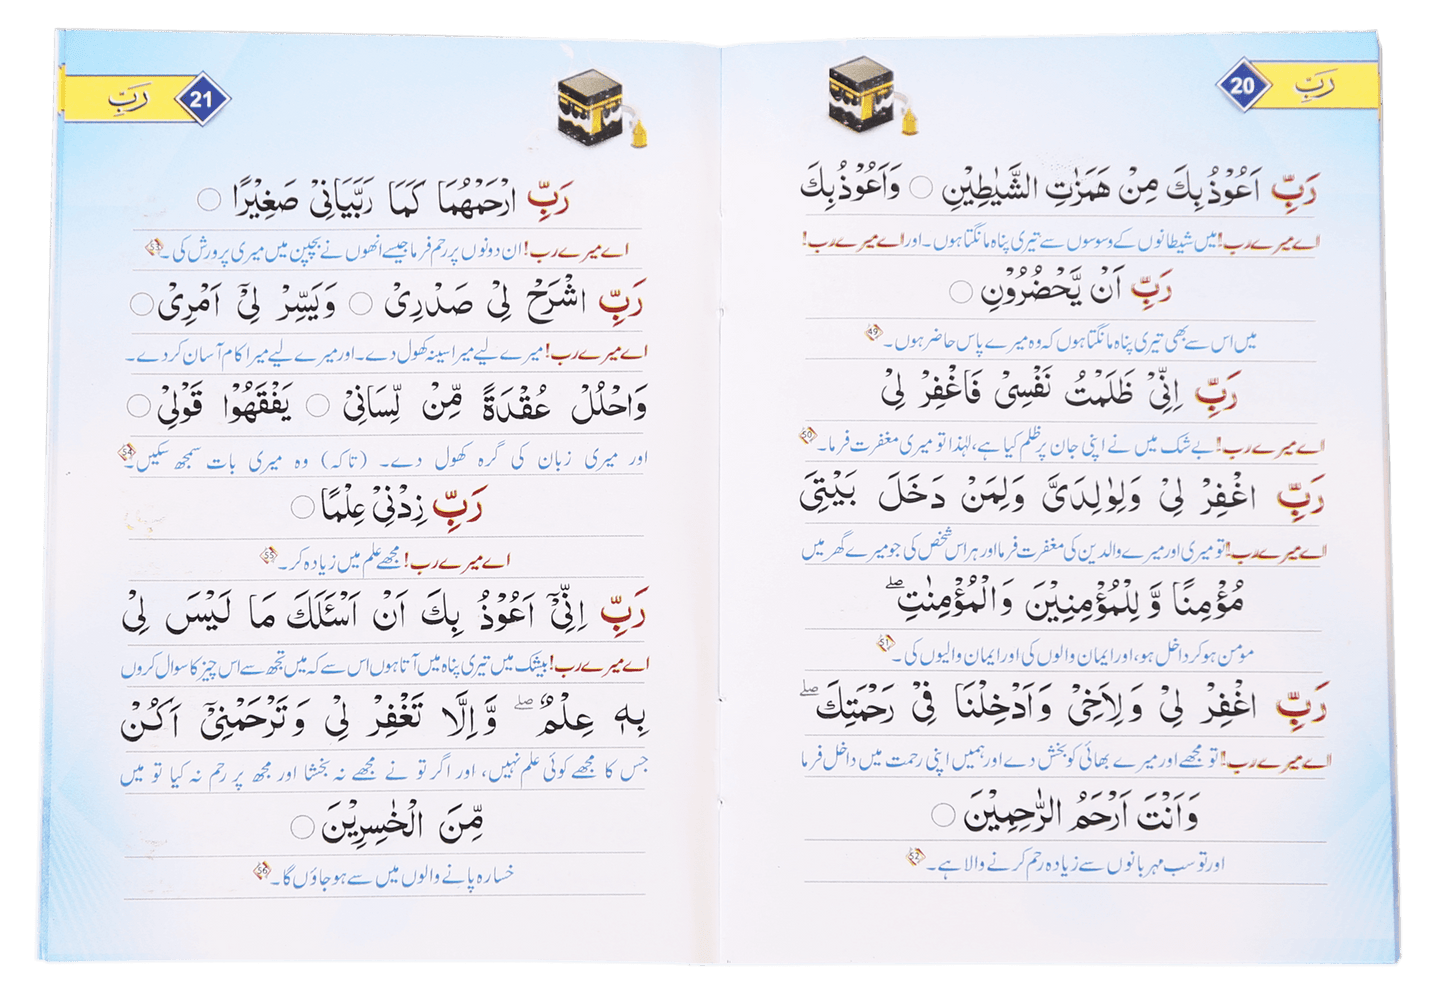 رَبِّ
20
رَبِّ اَعُوْذُ بِكَ مِنْ هَمَزٰتِ الشَّيٰطِيْنِ ○ وَاَعُوْذُ بِكَ
اے میرے رب! میں شیطانوں کے وسوسوں سے تیری پناہ مانگتا ہوں۔ اور اے میرے رب!
رَبِّ اَنْ يَّحْضُرُوْنِ ○
میں اس سے بھی تیری پناہ مانگتا ہوں کہ وہ میرے پاس حاضر ہوں۔ 49
رَبِّ اِنِّىْ ظَلَمْتُ نَفْسِىْ فَاغْفِرْ لِىْ
اے میرے رب! بے شک میں نے اپنی جان پر ظلم کیا ہے، لہٰذا تو میری مغفرت فرما۔ 50
رَبِّ اغْفِرْ لِىْ وَلِوٰلِدَىَّ وَلِمَنْ دَخَلَ بَيْتِىَ
اے میرے رب! تو میری اور میرے والدین کی مغفرت فرما اور ہر اس شخص کی جو میرے گھر میں
مُؤْمِنًا وَّ لِلْمُؤْمِنِيْنَ وَالْمُؤْمِنٰتِ ۖ
مومن ہو کر داخل ہو، اور ایمان والوں کی اور ایمان والیوں کی۔ 51
رَبِّ اغْفِرْ لِىْ وَلِاَخِىْ وَاَدْخِلْنَا فِىْ رَحْمَتِكَ ۖ
اے میرے رب! تو مجھے اور میرے بھائی کو بخش دے اور ہمیں اپنی رحمت میں داخل فرما
وَاَنْتَ اَرْحَمُ الرّٰحِمِيْنَ ○
اور تو سب مہربانوں سے زیادہ رحم کرنے والا ہے۔ 52
21
رَبِّ
رَبِّ ارْحَمْهُمَا كَمَا رَبَّيَانِىْ صَغِيْرًا ○
اے میرے رب! ان دونوں پر رحم فرما جیسے انھوں نے بچپن میں میری پرورش کی۔ 53
رَبِّ اشْرَحْ لِىْ صَدْرِىْ ○ وَيَسِّرْ لِىْٓ اَمْرِىْ ○
اے میرے رب! میرے لیے میرا سینہ کھول دے۔ اور میرے لیے میرا کام آسان کر دے۔
وَاحْلُلْ عُقْدَةً مِّنْ لِّسَانِىْ ○ يَفْقَهُوْا قَوْلِىْ ○
اور میری زبان کی گرہ کھول دے۔ (تاکہ) وہ میری بات سمجھ سکیں۔ 54
رَبِّ زِدْنِىْ عِلْمًا ○
اے میرے رب! مجھے علم میں زیادہ کر۔ 55
رَبِّ اِنِّىْٓ اَعُوْذُ بِكَ اَنْ اَسْئَلَكَ مَا لَيْسَ لِىْ
اے میرے رب! بیشک میں تیری پناہ میں آتا ہوں اس سے کہ میں تجھ سے اس چیز کا سوال کروں
بِهٖ عِلْمٌ ۖ وَّاِلَّا تَغْفِرْ لِىْ وَتَرْحَمْنِىْٓ اَكُنْ
جس کا مجھے کوئی علم نہیں، اور اگر تو نے مجھے نہ بخشا اور مجھ پر رحم نہ کیا تو میں
مِّنَ الْخٰسِرِيْنَ ○
خسارہ پانے والوں میں سے ہو جاؤں گا۔ 56